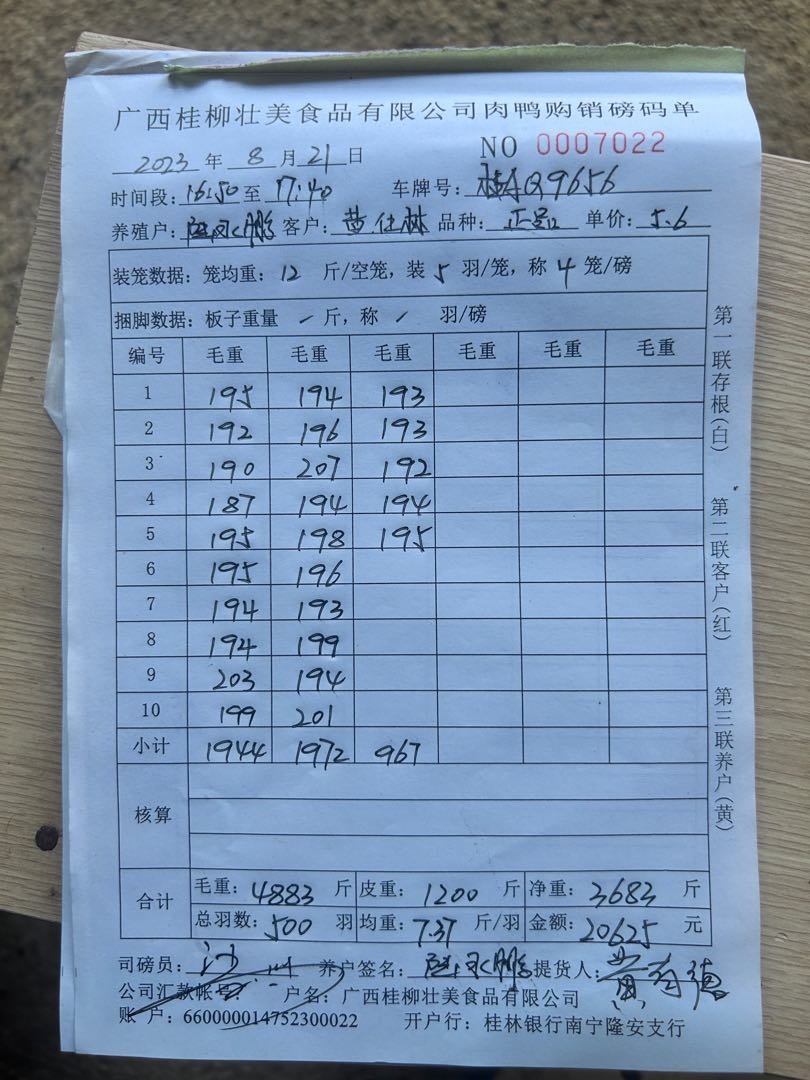 广西桂柳壮美食品有限公司肉鸭购销磅码单
2023 年 8 月 21 日 NO 0007022
时间段: 16:50 至 17:40 车牌号: 桂AQ9656
养殖户: 客户: 黄仕林 品种: 正品 单价: 5.6
装笼数据: 笼均重: 12 斤/空笼, 装 5 羽/笼, 称 4 笼/磅
捆脚数据: 板子重量 / 斤, 称 / 羽/磅
编号 毛重 毛重 毛重 毛重 毛重 毛重
1 195 194 193
2 192 196 193
3 190 207 192
4 187 194 194
5 195 198 195
6 195 196
7 194 193
8 194 199
9 203 194
10 199 201
小计 1944 1972 967
核算
合计 毛重: 4883 斤 皮重: 1200 斤 净重: 3683 斤
总羽数: 500 羽 均重: 7.37 斤/羽 金额: 20625 元
司磅员: 养户签名: 提货人:
公司汇款帐号: 户名: 广西桂柳壮美食品有限公司
账 户: 660000014752300022 开户行: 桂林银行南宁隆安支行
第一联存根(白)
第二联客户(红)
第三联养户(黄)